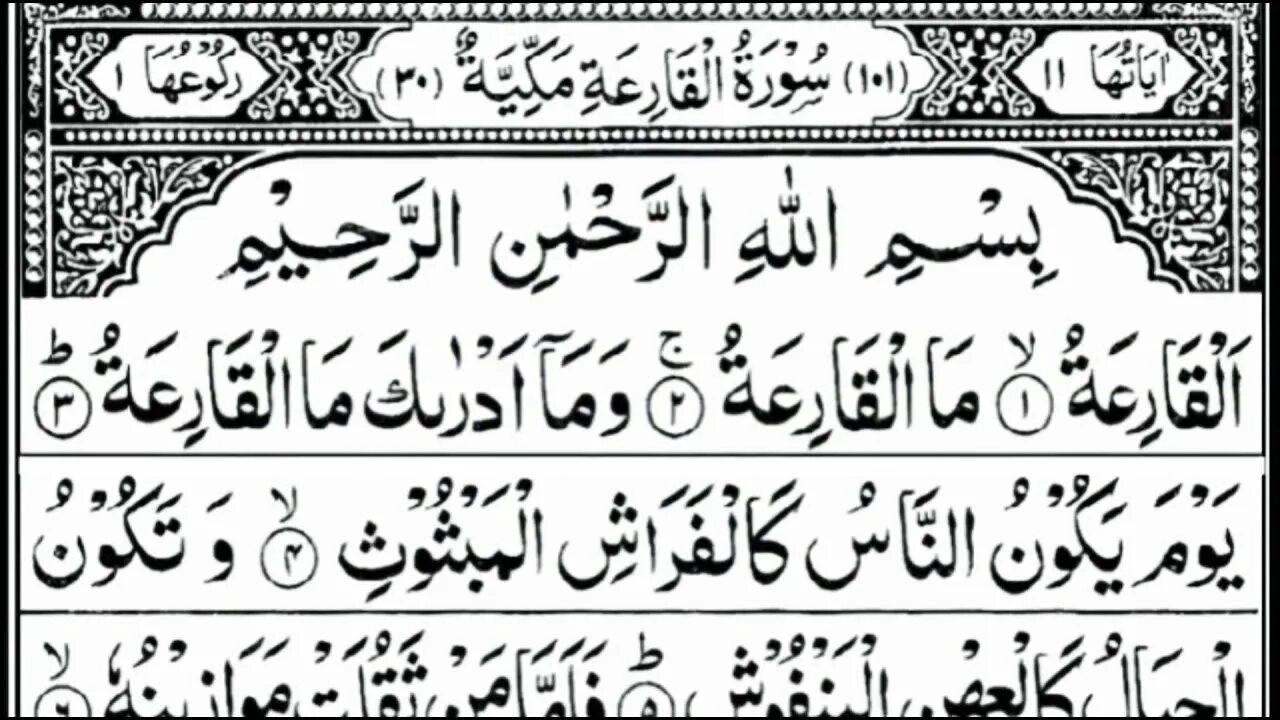 اٰيَاتُهَا ١١ (١٠١) سُوْرَةُ الْقَارِعَةِ مَكِّيَّةٌ (٣٠) رَكُوْعُهَا ١
بِسْمِ اللّٰهِ الرَّحْمٰنِ الرَّحِيْمِ
اَلْقَارِعَةُ ۙ ﴿١﴾ مَا الْقَارِعَةُ ۚ ﴿٢﴾ وَمَاۤ اَدْرٰىكَ مَا الْقَارِعَةُ ؕ ﴿٣﴾
يَوْمَ يَكُوْنُ النَّاسُ كَالْفَرَاشِ الْمَبْثُوْثِ ۙ ﴿۴﴾ وَ تَكُوْنُ
الْجِبَالُ كَالْعِهْنِ الْمَنْفُوْشِ ؕ ﴿۵﴾ فَاَمَّا مَنْ ثَقُلَتْ مَوَازِيْنُهٗ ۙ ﴿۶﴾